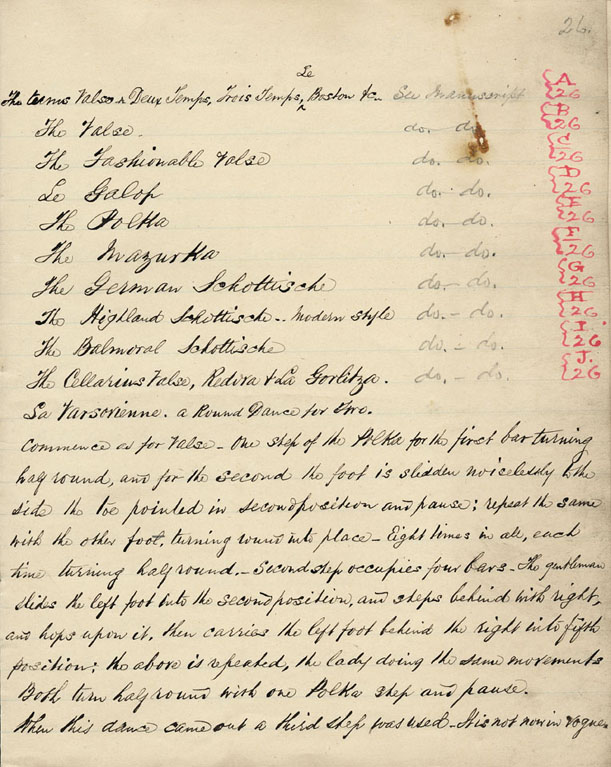 26.
The terms Valse à Deux Temps, Trois Temps, Le Boston &c. See Manuscript A 26
The Valse. do. - do. B 26
The Fashionable Valse do. - do. C 26
Le Galop do. - do. D 26
The Polka do. - do. E 26
The Mazurka do. - do. F 26
The German Schottische do. - do. G 26
The Highland Schottische - Modern style do. - do. H 26
The Balmoral Schottische do. - do. I. 26
The Cellarius Valse, Redova & La Gorlitza. do. - do. J. 26
La Varsovienne. a Round Dance for Two.
Commence as for Valse - One step of the Polka for the first bar turning
half round, and for the second the foot is slidden noiselessly to the
side the toe pointed in second position and pause; repeat the same
with the other foot, turning round into place - Eight times in all, each
time turning half round. - Second step occupies four bars - The gentleman
slides the left foot into the second position, and steps behind with right,
and hops upon it, then carries the left foot behind the right into fifth
position; the above is repeated, the lady doing the same movements
Both turn half round with one Polka step and pause.
When this dance came out a third step was used - It is not now in vogue.